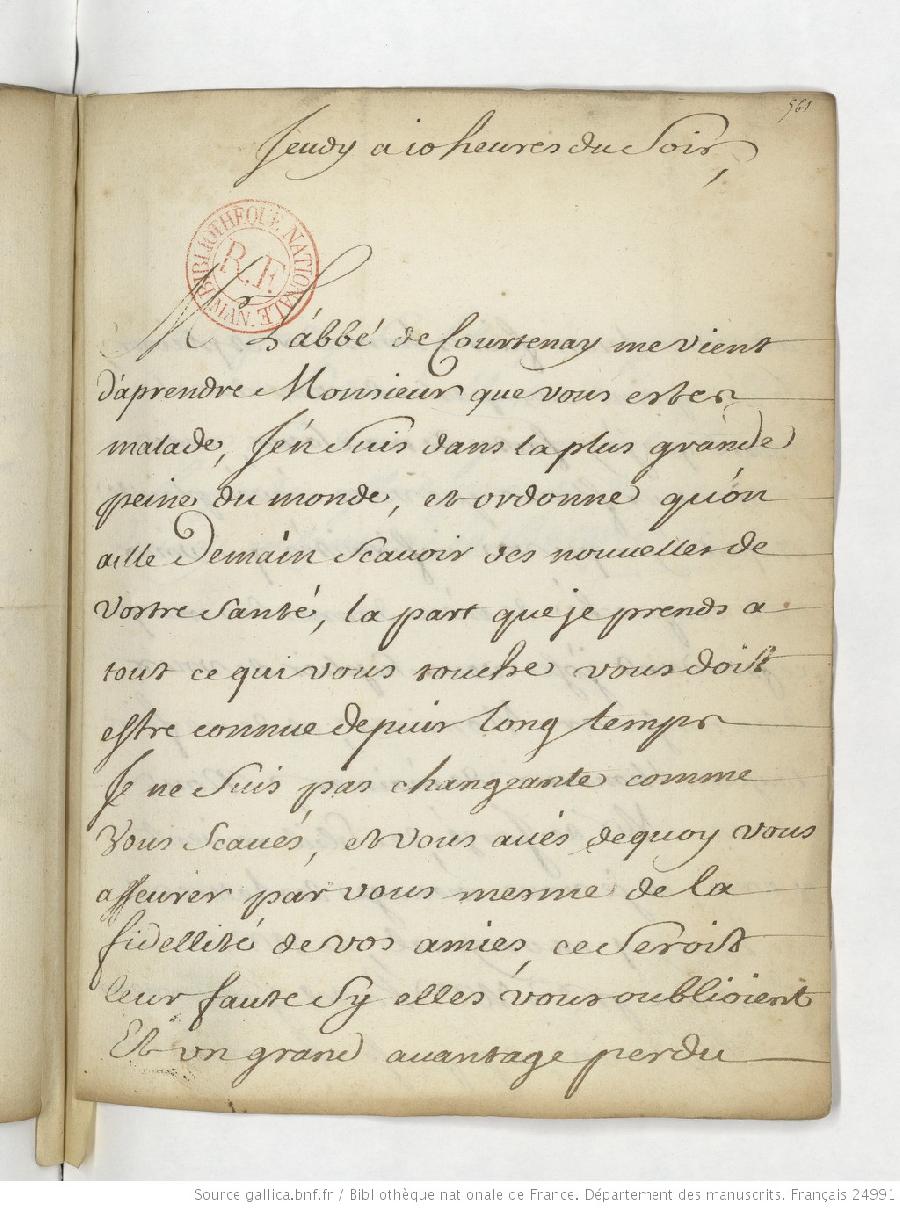 561
Jeudy a 10 heures du Soir,
BIBLIOTHÈQUE NATIONALE MAN.
R.F.
Mr L'abbé de Courtenay me vient
d'aprendre Monsieur que vous estes
malade, J'en Suis dans la plus grande
peine du monde, et ordonne qu'on
aille Demain Scauoir des nouuelles de
vostre Santé, la part que je prends a
tout ce qui vous touche vous doit
estre connue depuis long temps
Je ne Suis pas changeante comme
Vous Scaués, et vous aués de quoy vous
asseurer par vous mesme de la
fidellité de vos amies, ce Seroit
leur faute Sy elles vous oublioient
Et vn grand auantage perdu
Source gallica.bnf.fr / Bibliothèque nationale de France. Département des manuscrits. Français 24991